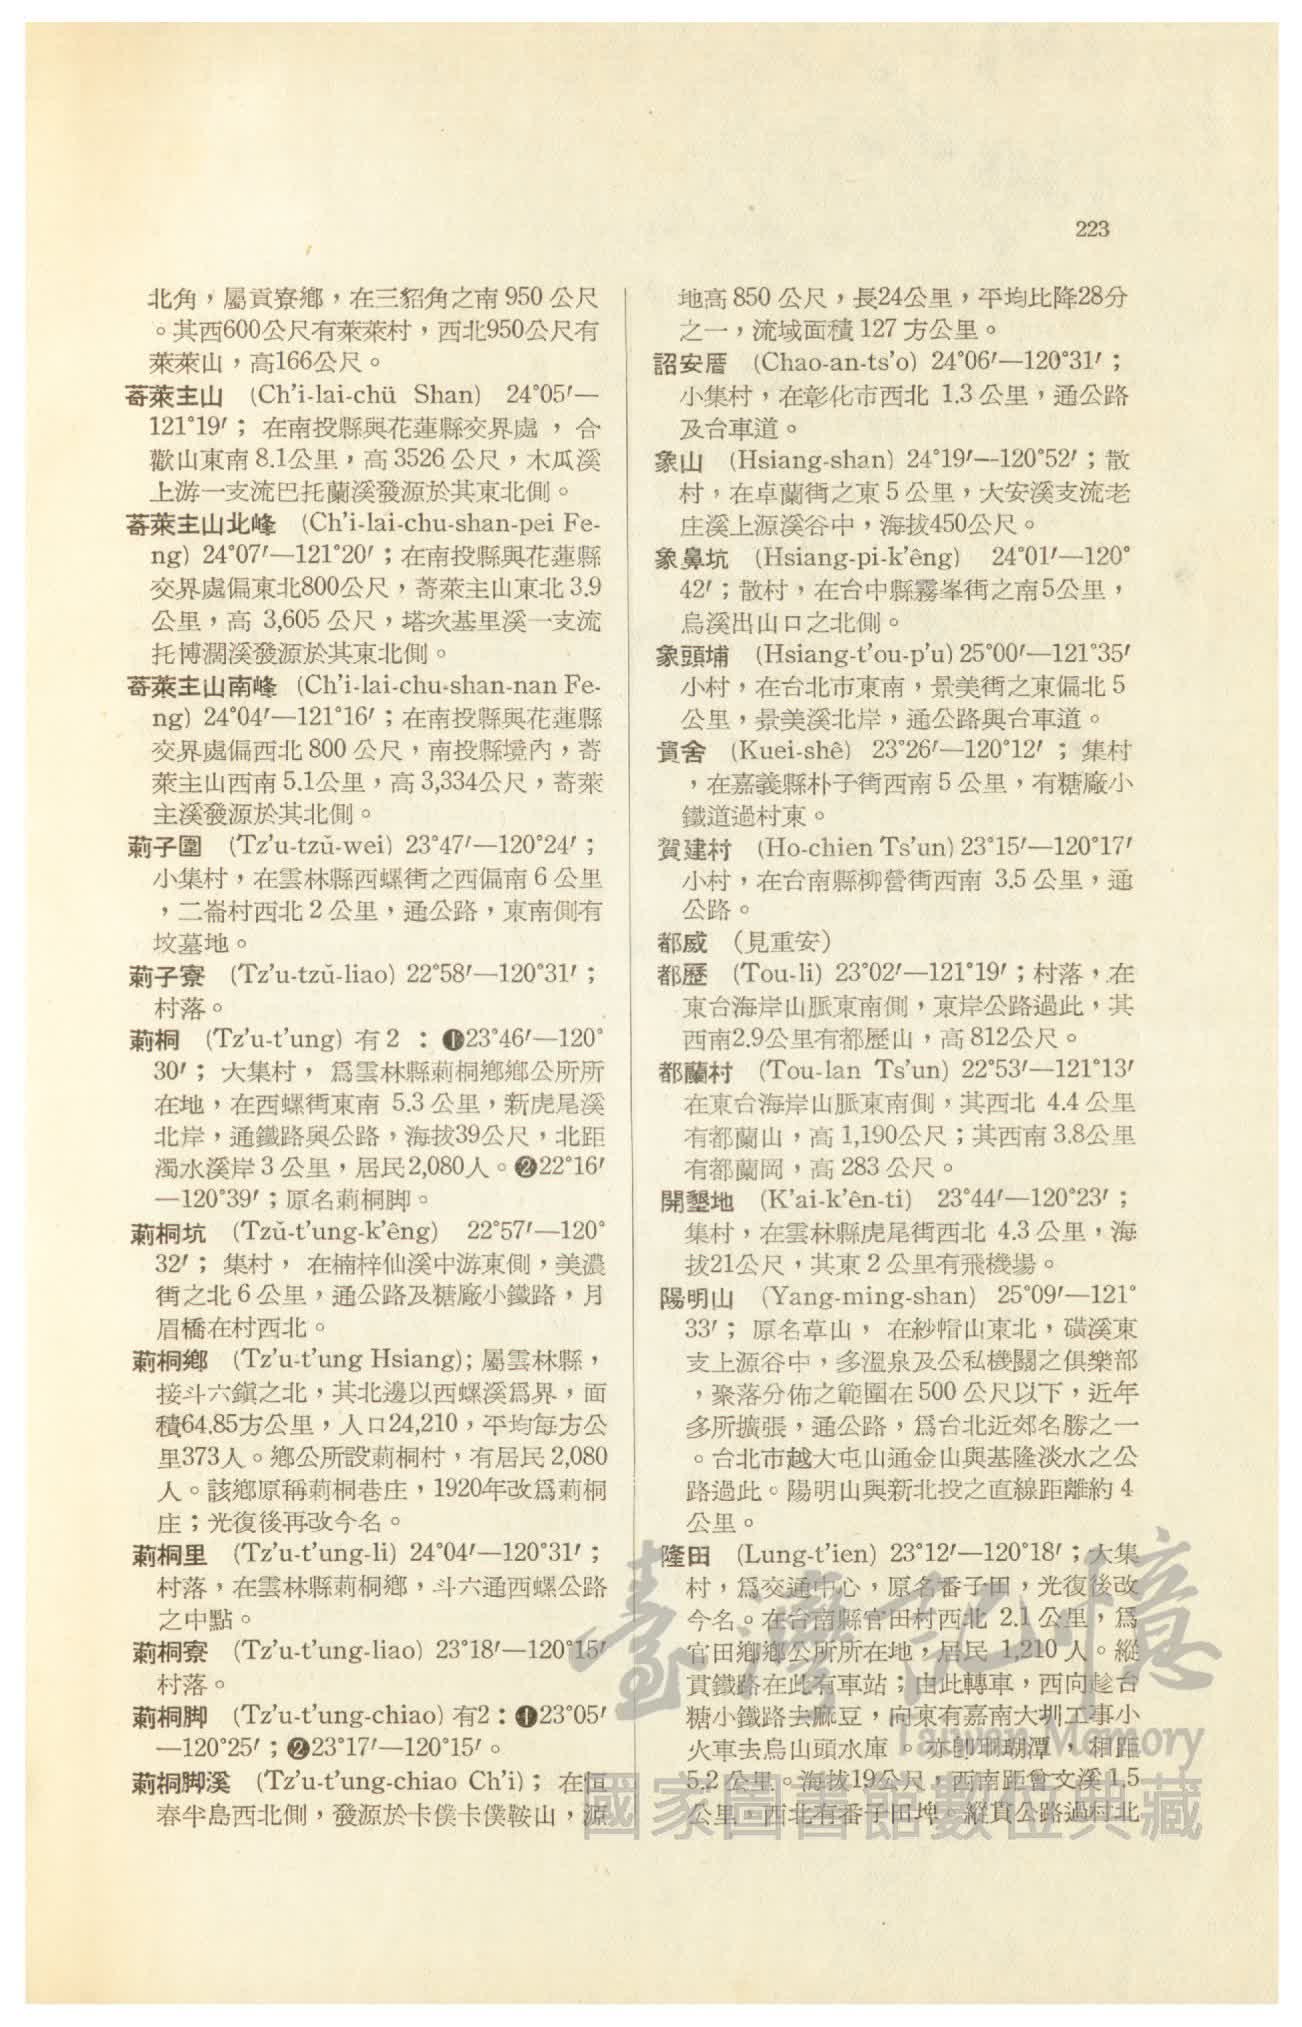 223
北角，屬貢寮鄉，在三貂角之南 950 公尺
。其西600公尺有萊萊村，西北950公尺有
萊萊山，高166公尺。
蓊萊主山 (Ch'i-lai-chü Shan) 24°05′—
121°19′； 在南投縣與花蓮縣交界處 ， 合
歡山東南 8.1公里，高 3526 公尺，木瓜溪
上游一支流巴托蘭溪發源於其東北側。
蓊萊主山北峰 (Ch'i-lai-chu-shan-pei Fe-
ng) 24°07′—121°20′；在南投縣與花蓮縣
交界處偏東北800公尺，萊主山東北 3.9
公里，高 3,605 公尺，塔次基里溪一支流
托博濶溪發源於其東北側。
萊主山南峰 (Ch'i-lai-chu-shan-nan Fe-
ng) 24°04′—121°16′；在南投縣與花蓮縣
交界處偏西北 800 公尺，南投縣境內，
萊主山西南 5.1公里，高 3,334公尺，萊
主溪發源於其北側。
莿子圍 (Tz'u-tzŭ-wei) 23°47′—120°24′；
小集村，在雲林縣西螺街之西偏南 6 公里
，二崙村西北 2 公里，通公路，東南側有
坟墓地。
莿子寮 (Tz'u-tzŭ-liao) 22°58′—120°31′；
村落。
莿桐 (Tz'u-t'ung) 有 2 ：❶23°46′—120°
30′； 大集村， 爲雲林縣莿桐鄉鄉公所所
在地，在西螺街東南 5.3 公里，新虎尾溪
北岸，通鐵路與公路，海拔39公尺，北距
濁水溪岸 3 公里，居民2,080人。❷22°16′
—120°39′；原名莿桐脚。
莿桐坑 (Tzŭ-t'ung-k'êng) 22°57′—120°
32′； 集村， 在楠梓仙溪中游東側，美濃
街之北 6 公里，通公路及糖廠小鐵路，月
眉橋在村西北。
莿桐鄉 (Tz'u-t'ung Hsiang); 屬雲林縣，
接斗六鎭之北，其北邊以西螺溪爲界，面
積64.85方公里，人口24,210，平均每方公
里373人。鄉公所設莿桐村，有居民 2,080
人。該鄉原稱莿桐巷庄，1920年改爲莿桐
庄；光復後再改今名。
莿桐里 (Tz'u-t'ung-li) 24°04′—120°31′；
村落，在雲林縣莿桐鄉，斗六通西螺公路
之中點。
莿桐寮 (Tz'u-t'ung-liao) 23°18′—120°15′
村落。
莿桐脚 (Tz'u-t'ung-chiao) 有2：❶23°05′
—120°25′；❷23°17′—120°15′。
莿桐脚溪 (Tz'u-t'ung-chiao Ch'i)； 在恒
春半島西北側，發源於卡僕卡僕鞍山，源
地高 850 公尺，長24公里，平均比降28分
之一，流域面積 127 方公里。
詔安厝 (Chao-an-ts'o) 24°06′—120°31′；
小集村，在彰化市西北 1.3 公里，通公路
及台車道。
象山 (Hsiang-shan) 24°19′—120°52′；散
村，在卓蘭街之東 5 公里，大安溪支流老
庄溪上源溪谷中，海拔450公尺。
象鼻坑 (Hsiang-pi-k'êng) 24°01′—120°
42′；散村，在台中縣霧峯街之南5公里，
烏溪出山口之北側。
象頭埔 (Hsiang-t'ou-p'u) 25°00′—121°35′
小村，在台北市東南，景美街之東偏北 5
公里，景美溪北岸，通公路與台車道。
貴舍 (Kuei-shê) 23°26′—120°12′ ；集村
，在嘉義縣朴子街西南 5 公里，有糖廠小
鐵道過村東。
賀建村 (Ho-chien Ts'un) 23°15′—120°17′
小村，在台南縣柳營街西南 3.5 公里，通
公路。
都威 （見重安）
都歷 (Tou-li) 23°02′—121°19′；村落，在
東台海岸山脈東南側，東岸公路過此，其
西南2.9公里有都歷山，高 812公尺。
都蘭村 (Tou-lan Ts'un) 22°53′—121°13′
在東台海岸山脈東南側，其西北 4.4 公里
有都蘭山，高 1,190公尺；其西南 3.8公里
有都蘭岡，高 283 公尺。
開墾地 (K'ai-k'ên-ti) 23°44′—120°23′；
集村，在雲林縣虎尾街西北 4.3 公里，海
拔21公尺，其東 2 公里有飛機場。
陽明山 (Yang-ming-shan) 25°09′—121°
33′； 原名草山， 在紗帽山東北，磺溪東
支上源谷中，多溫泉及公私機關之俱樂部
，聚落分佈之範圍在 500 公尺以下，近年
多所擴張，通公路，爲台北近郊名勝之一
。台北市越大屯山通金山與基隆淡水之公
路過此。陽明山與新北投之直線距離約 4
公里。
隆田 (Lung-t'ien) 23°12′—120°18′；大集
村，爲交通中心，原名番子田，光復後改
今名。在台南縣官田村西北 2.1 公里，爲
官田鄉鄉公所所在地，居民 1,210 人。縱
貫鐵路在此有車站；由此轉車，西向趁台
糖小鐵路去麻豆，向東有嘉南大圳工事小
火車去烏山頭水庫。亦卽珊瑚潭，相距
5.2 公里。海拔19公尺，西南距曾文溪 1.5
公里 西北有番子田埤。縱貫公路過村北
臺灣記憶
Taiwan Memory
國家圖書館數位典藏